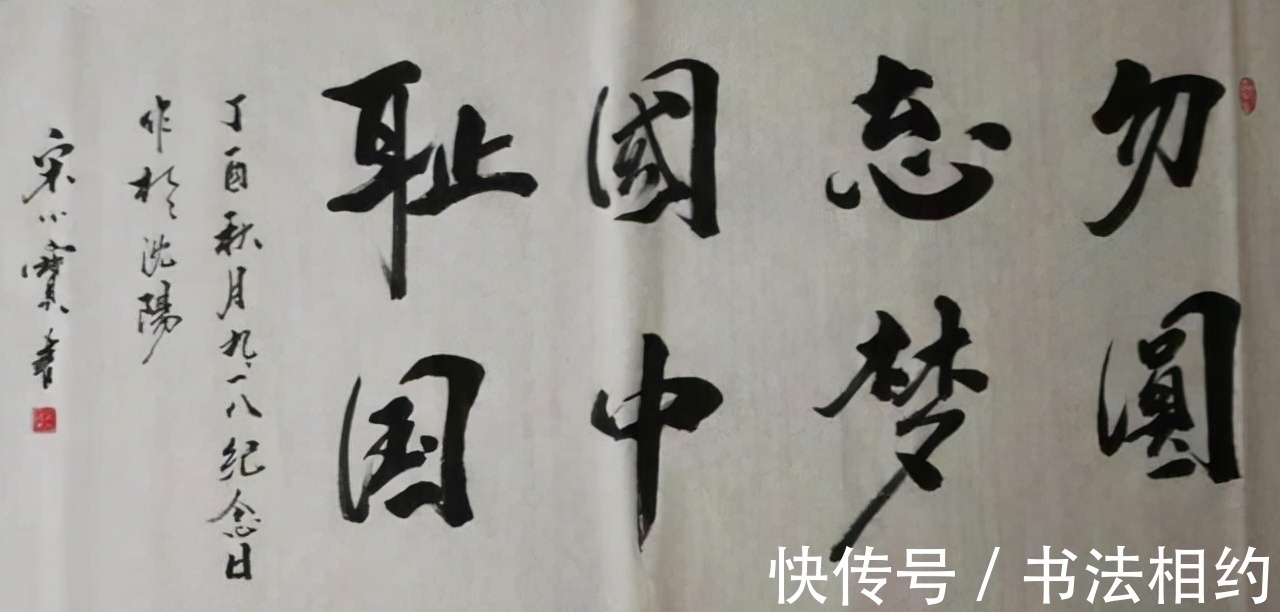 勿忘國耻
圓梦中国
丁酉秋月九.一八纪念日
作於沈陽
宋小寳書
快传号 / 书法相约